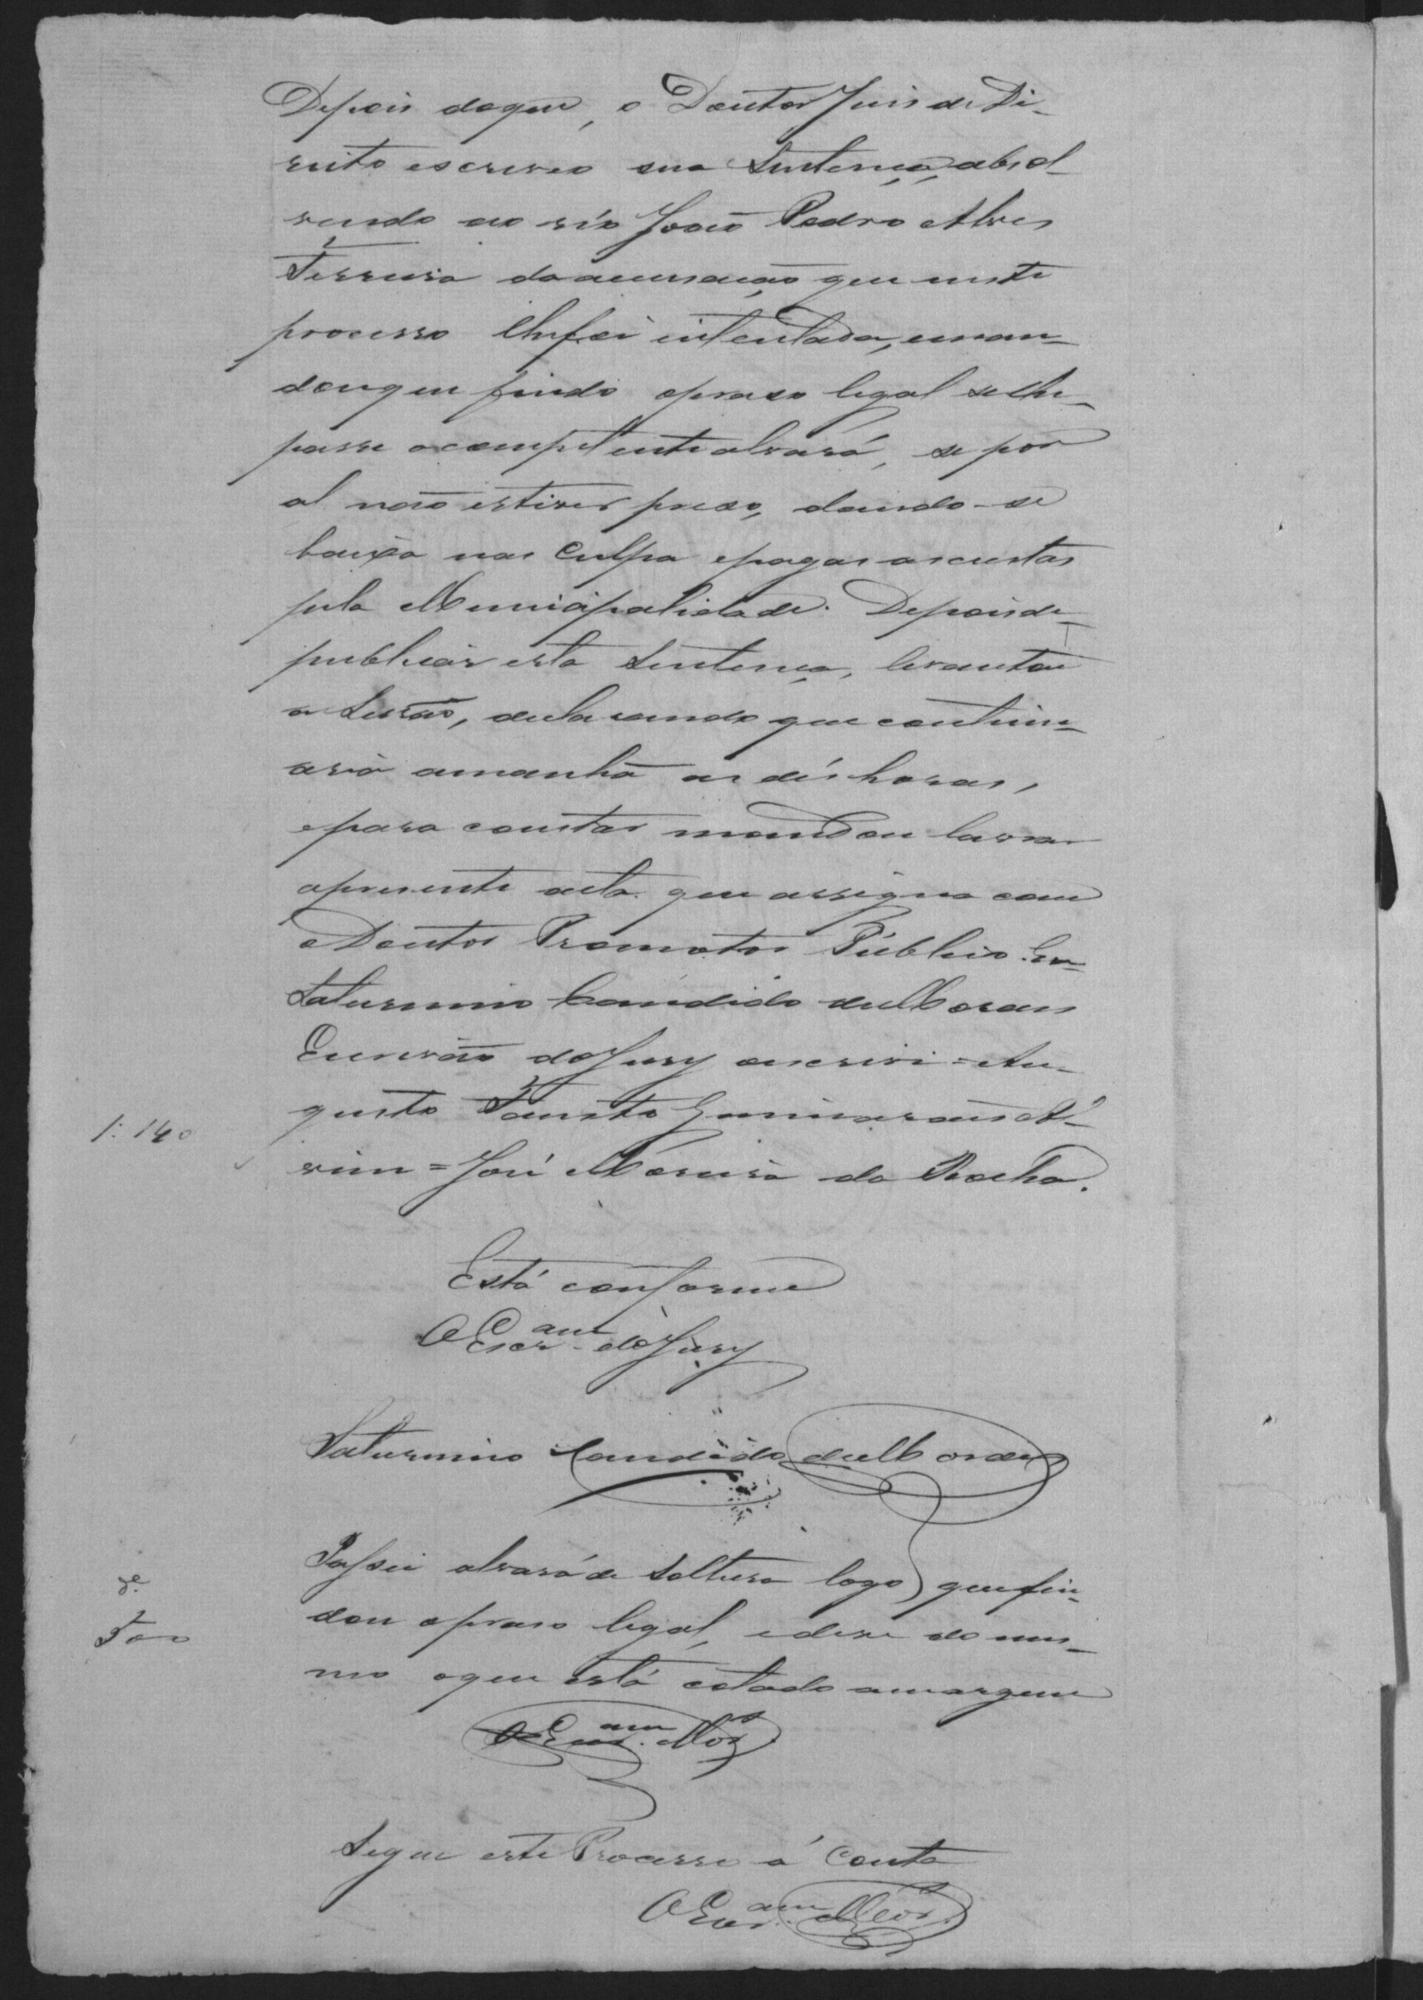 Depois do que, o Doutor Juis de Di-
reito escreveo sua Sentença, absol-
vendo ao réo João Pedro Alves
Ferreira da accusação que neste
processo lhe foi intentada, e man-
dou que findo o praso legal se lhe
passe o competente alvará, se por
al não estiver preso, dando-se
baixa na Culpa e pagas as custas
pela Municipalidade. Depois de
publicar esta Sentença, levantou
a Sessão, declarando que continu-
ará amanhã as dés horas,
e para constar mandou lavrar
a presente acta que assigna com
o Doutor Promotor Público. Eu
Saturnino Candido de Moraes
Escrivão do Jury o escrivi = Au-
gusto Fausto Guimarães Al-
vim = José Moreira da Rocha.
1:140
Está conforme
O Escr.am do Jury
Saturnino Candido de Moraes
Passei alvará de soltura logo que fin-
dou o praso legal, e dese do mes-
mo o que está cotado a margem
O Escr.am Mós
Segue este Processo á Conta
O Escr.am Mós